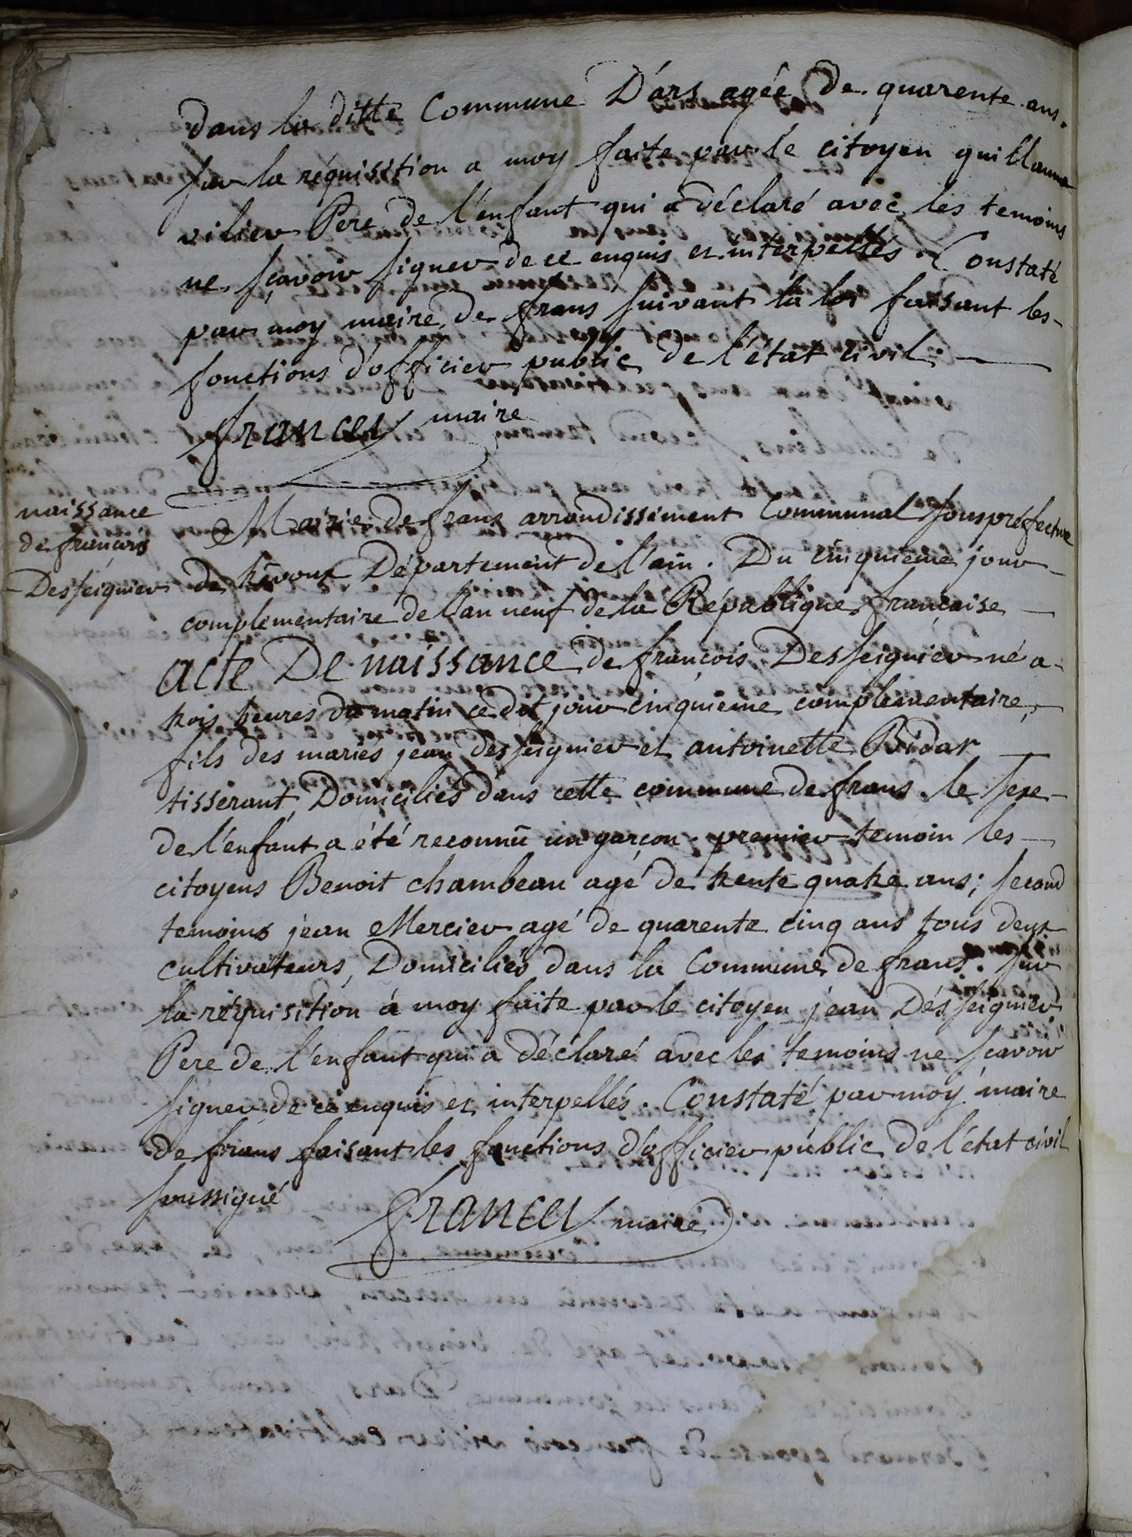 dans la ditte Commune D'ars agée De quarente ans.
sur la réquisition a moy faite par le citoyen guillaume
vilier Pere de l'enfant qui a déclaré avec les temoins
ne sçavoir signer de ce enquis et interpellés. Constaté
par moy maire de frans suivant la loi faisant les
fonctions d'officier public de l'état civil
francey maire
naissance
de francois
Desseignier
Mairie de frans arrondissement Communal souspréfecture
de trevoux Département de l'ain. Du cinquieme jour
complementaire de l'an neuf de la République française
acte De naissance de françois Desseignier né a
trois heures du matin ce dit jour cinquieme complementaire,
fils des mariés jean desseignier et antoinette Bidar
tisserant, Domiciliés dans cette commune de frans le sexe
de l'enfant a été reconnu un garçon. premier temoin les
citoyens Benoit chambeau agé de trente quatre ans; second
temoins jean Mercier agé de quarente cinq ans tous deux
cultivateurs, Domiciliés dans la Commune de frans. sur
la réquisition à moy faite par le citoyen jean Désseignier
Pere de l'enfant qui a déclaré avec les temoins ne sçavoir
signer de ce enquis et interpellés. Constaté par moy maire
de frans faisant les fonctions d'officier public de l'état civil
soussigné
francey maire